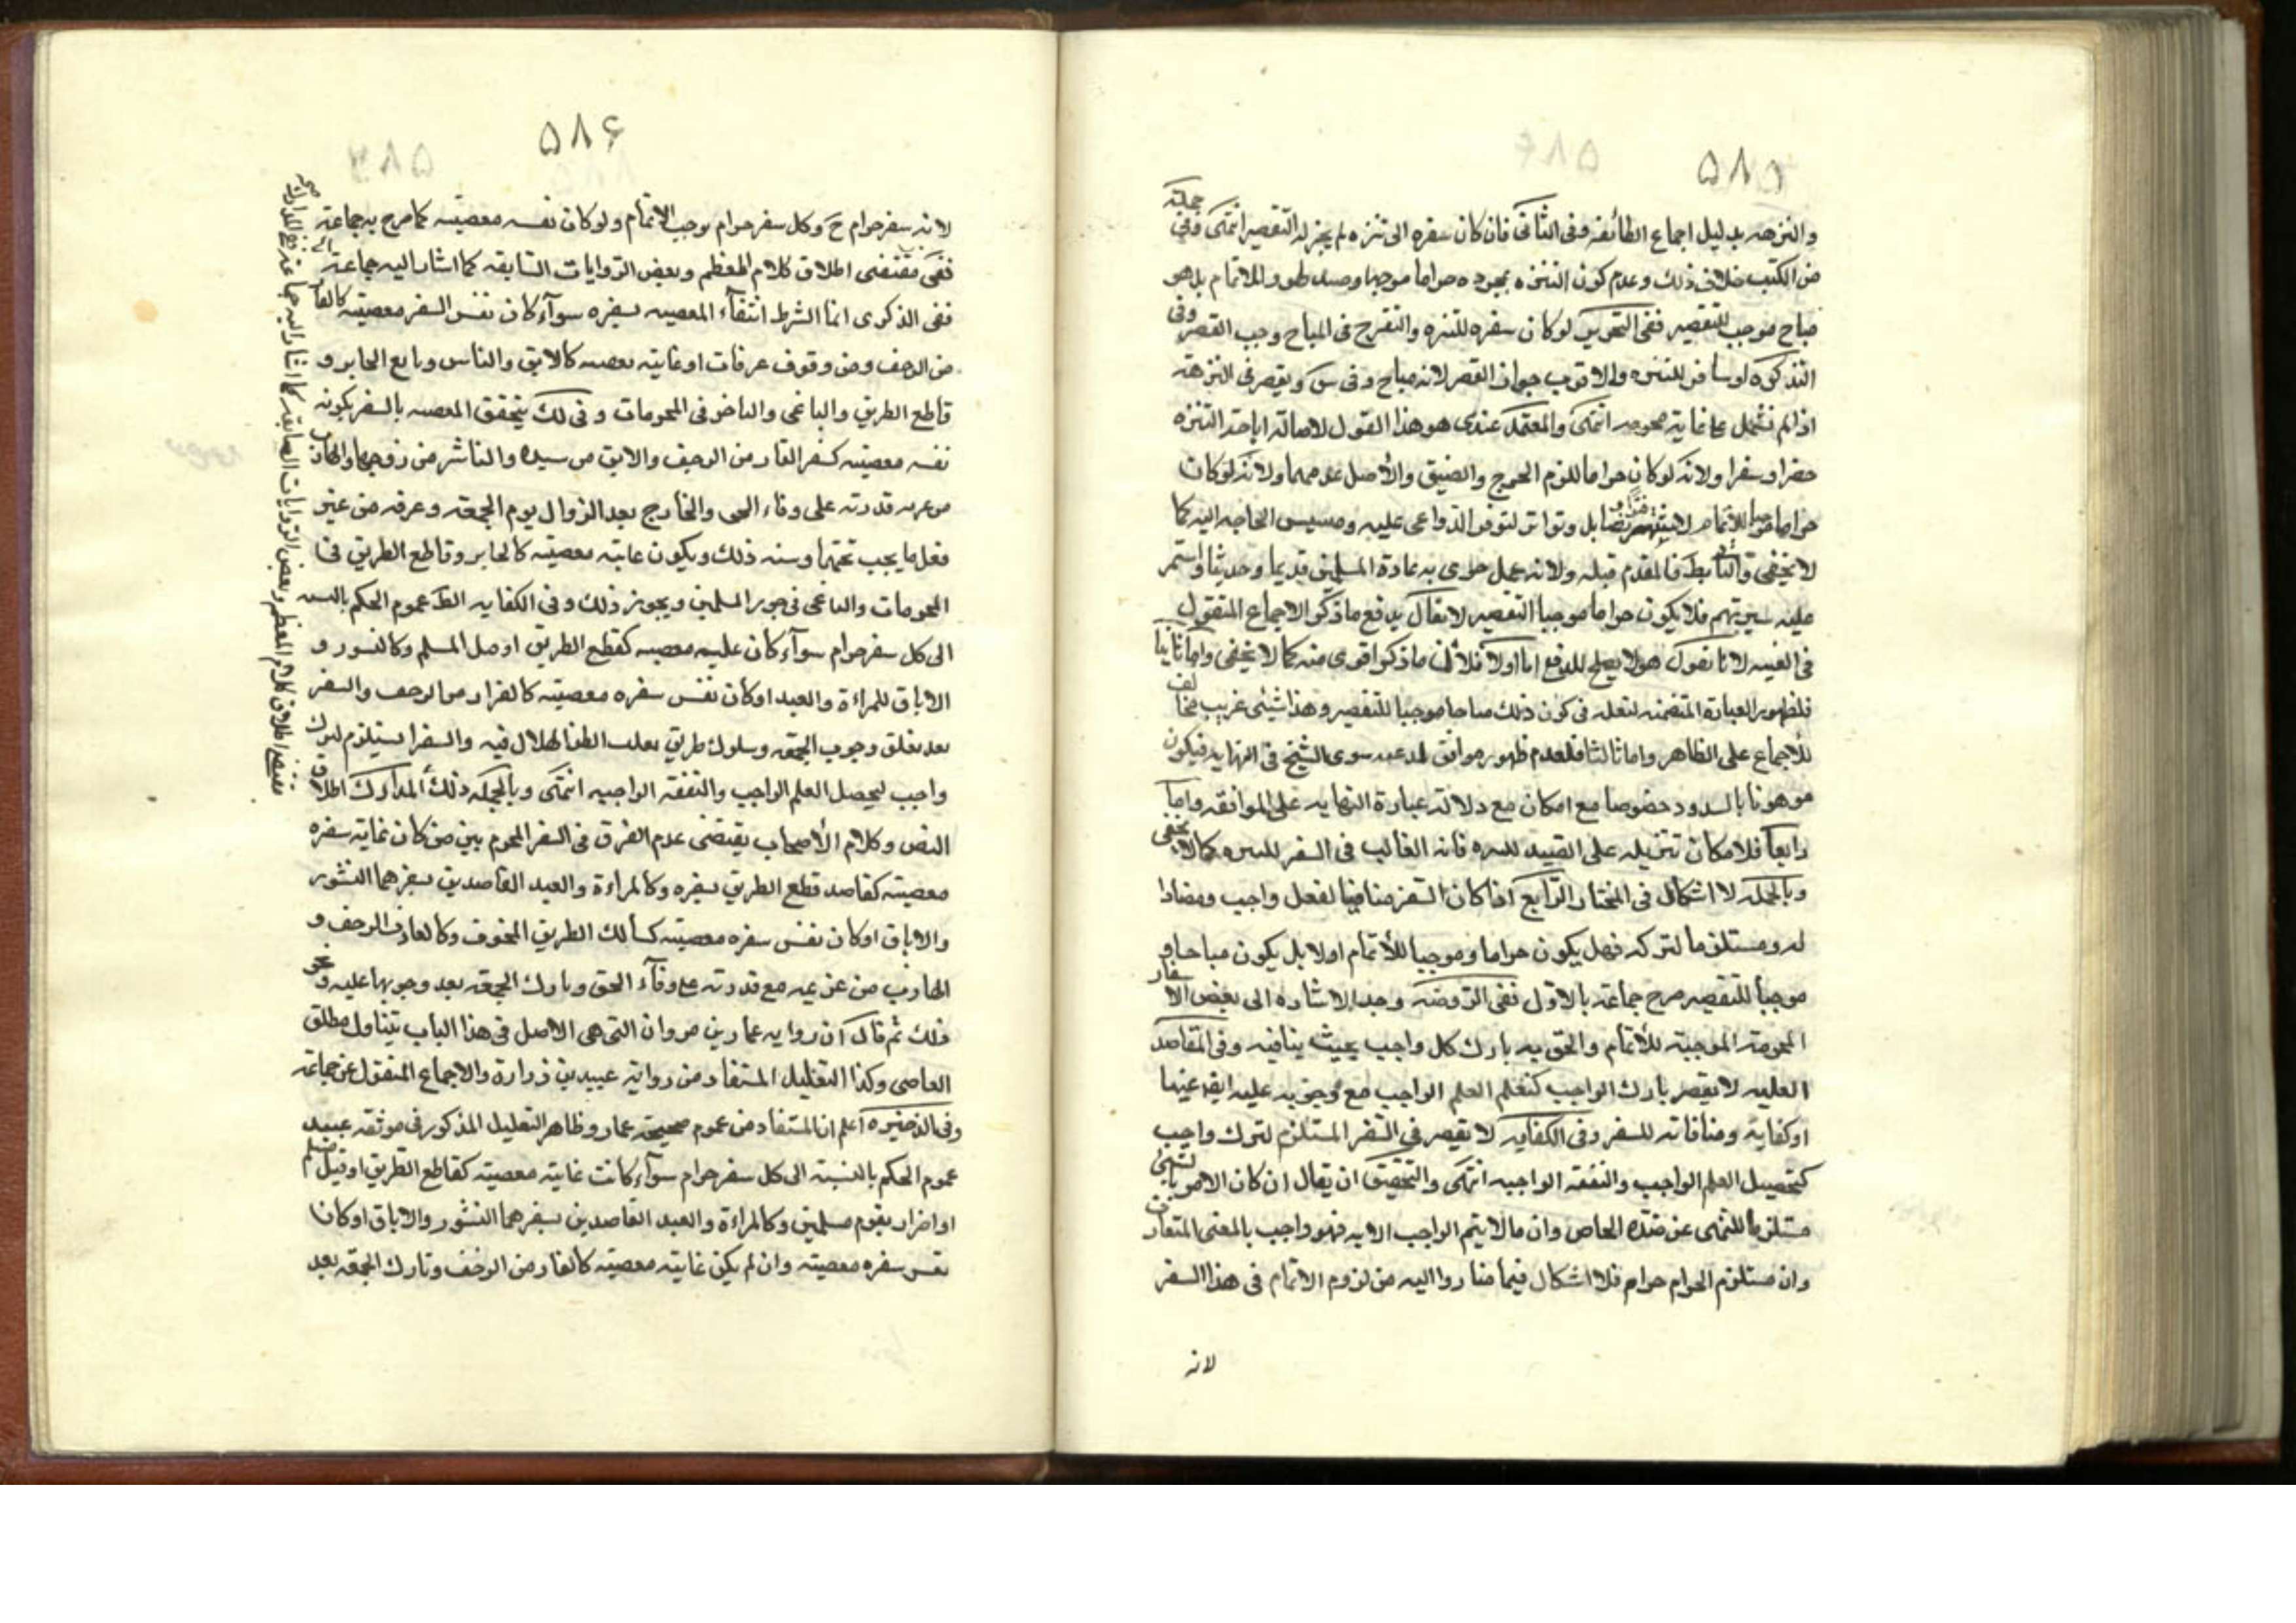 ۵۸۵
والنزهة بدليل اجماع الطائفة وفى الثانى فان كان سفره الى تنزه لم يجز له التقصير انتهى وفى جملة
من الكتب خلاف ذلك وعدم كون التنزه بمجرده حراما موجبا للاتمام بل هو
مباح موجب للتقصير ففى التحرير لو كان سفره للتنزه والتفرج فى المباح وجب القصر وفى
التذكرة لو سافر للتنزه فالاقرب جواز القصر لانه مباح وفى س ويقصر فى النزهة
اذا لم تشمل على غاية محرمه انتهى والمعتمد عندى هو هذا القول لاصالة اباحة التنزه
حضرا وسفرا ولانه لو كان حراما للزم الحرج والضيق والأصل عدمهما ولانه لو كان
حراما موجبا للأتمام لاشتهر بل وتواتر لتوفر الدواعى عليه ومسيس الحاجه اليه كما
لا يخفى والتالى بط فالمقدم مثله ولانه عمل جرى به عادة المسلمين قديما وحديثا واستمر
عليه سيرتهم فلا يكون حراما موجبا التقصير لا يقال يدفع ما ذكر الاجماع المنقول
فى الغنيه لانا نقول هو لا يصلح للدفع اما اولا فلأن ما ذكر اقوى منه كما لا يخفى واما ثانيا
فلظهور العبارة المتضمنه لنقله فى كون ذلك مباحا موجبا للتقصير وهذا شيئى غريب مخالف
للأجماع على الظاهر واما ثالثا فلعدم ظهور موافق له عدى سوى الشيخ فى النهايه فيكون
موهونا بالشذوذ خصوصا مع امكان منع دلالة عبارة النهايه على الموافقه واما
رابعا فلامكان تنزيله على الصيد للنزه فانه الغالب فى السفر للتنزه كما لا يخفى
وبالجمله لا اشكال فى المختار الرابع اذا كان السفر منافيا لفعل واجب ومضادا
له ومستلزما لتركه فهل يكون حراما وموجبا للأتمام اولا بل يكون مباحا و
موجبا للتقصير صرح جماعة بالاول ففى الروضه وجد الاشاره الى بعض الاسفار
المحرمة الموجبة للأتمام والحق به تارك كل واجب بحيث ينافيه وفى المقاصد
العليه لا يقصر تارك الواجب كتعلم العلم الواجب مع وجوبه عليه عينها
او كفاية ومنافاته للسفر وفى الكفايه لا يقصر فى السفر المستلزم لترك واجب
كتحصيل العلم الواجب والنفقه الواجبه انتهى والتحقيق ان يقال ان كان الامر بالشيئى
مستلزما للنهى عن ضده الخاص وان ما لا يتم الواجب الا به فهو واجب بالمعنى المتعارف
وان مستلزم الحرام حرام فلا اشكال فيما صاروا اليه من لزوم الاتمام فى هذا السفر
لانه
۵۸۶
لانه سفر حرام ح وكل سفر حرام يوجب الاتمام ولو كان نفسه معصيته كما صرح به جماعة
ففى مقتضى اطلاق كلام المعظم وبعض الروايات السابقه كما اشار اليه جماعة
ففى الذكرى انما الشرط انتفآء المعصيه بسفره سوآء كان نفس السفر معصيته كالفار
من الزحف ومن وقوف عرفات او غايته معصيه كالابق والناس وتابع الجاير و
قاطع الطريق والباغى والباخر فى المحرمات وفى لك يتحقق المعصيه بالسفر بكونه
نفسه معصيته كسفر الفار من الزحف والابق من سيده والناشز من زوجها والهارب
من غريمه قدرته على وفاء الحق والخارج بعد الزوال يوم الجمعة وعرفه من غير
فعل ما يجب تحتهما وسنه ذلك ويكون غايته معصيته كالجابر وقاطع الطريق فى
المحرمات والباغى فى جور المسلمين ويجوز ذلك وفى الكفايه الظ عموم الحكم بالنسبه
الى كل سفر حرام سوآء كان غايته معصيه كقطع الطريق او صل المسلم وكالنشور و
الاباق للمراءة والعبد او كان نفس سفره معصيته كالفرار من الزحف والسفر
بعد تعلق وجوب الجمعه وسلوك طريق يغلب الظن الهلاك فيه والسفر المستلزم لترك
واجب لتحصيل العلم الواجب والنفقه الواجبه انتهى وبالجمله ذلك المدارك اطلاق
النص وكلام الأصحاب يقتضى عدم الفرق فى السفر المحرم بين من كان غاية سفره
معصيته كقاصد قطع الطريق بسفره وكالمراءة والعبد القاصدين بسفرهما النشور
والاباق او كان نفس سفره معصيته كسالك الطريق المخوف وكالفار من الزحف و
الهارب من غريمه مع قدرته على وفآء الحق وتارك الجمعه بعد وجوبها عليه ونحو
ذلك ثم قال ان روايه عمار بن مروان التى هى الاصل فى هذا الباب يتناول مطلق
العاصى وكذا التعليل المستفاد من رواية عبيد بن زرارة والاجماع المنقول عن جماعة
وفى الذخيره اعلم ان المستفاد من عموم صحيحة عمار وظاهر التعليل المذكور فى موثقه عبيد
عموم الحكم بالنسبة الى كل سفر حرام سوآء كانت غايته معصيته كقاطع الطريق او قتل مسلم
او اضرار بقوم مسلمين وكالمراءة والعبد القاصدين بسفرهما النشور والاباق او كانا
نفس سفره معصيته وان لم يكن غايته معصيته كالفار من الزحف وتارك الجمعه بعد
مقتضى اطلاق كلام المعظم وبعض الروايات السابقه كما اشار اليه جماعة ففى المدارك صح